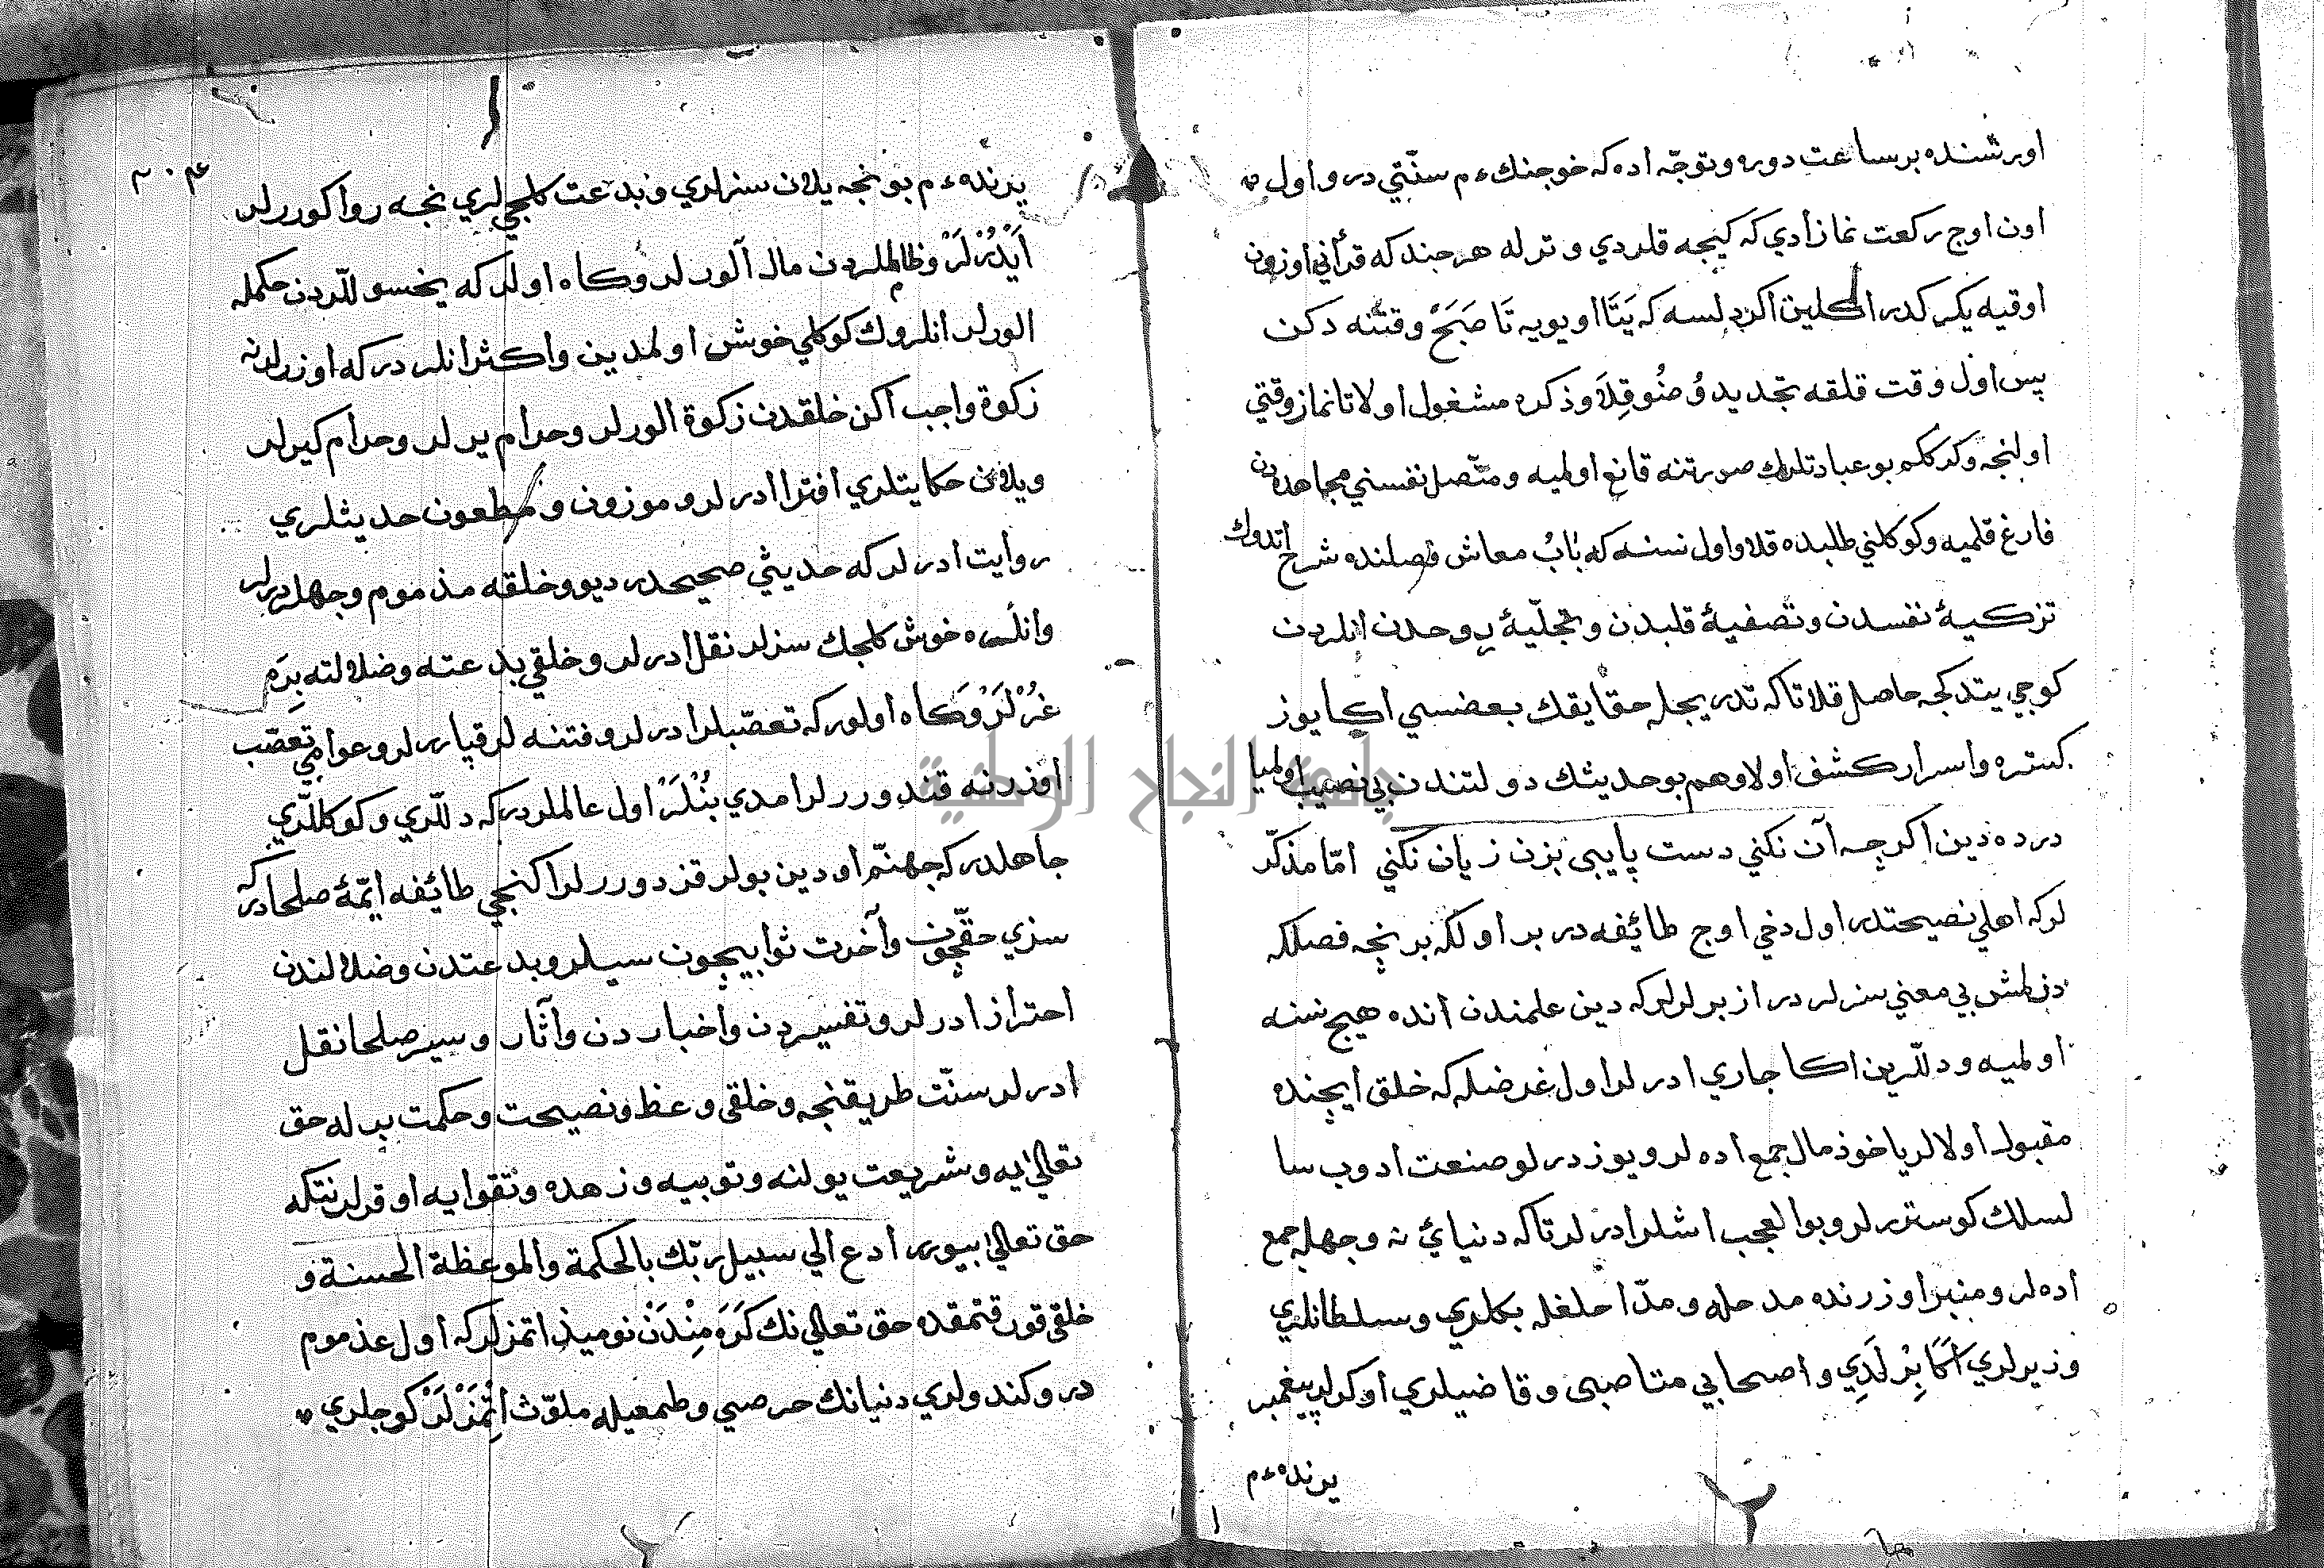 اورتسنده بر ساعت دوره و توجّه اده که خوجنك ءم سنّتي در و اول
اون اوچ ركعت نماز ادي كه كيجه قلردي وترله هر جند كه قرأني اوزون
اوقيه يكركدر اكلين اكر دلسه كه يَتَا اويويه تَا صَبَحْ وقتنه دكن
پس اول وقت قلقه تجديد وُضُو قِلَا و ذكره مشغول اولا تا نماز وقتي
اولنجه و كركلم بو عبادتلرك صورتنه قانع اولميه و متّصل نفسني مجاهده دن
فارغ قلميه و كوكلني طلبده قلا و اول نسنه كه بَابُ معاش فصلنده شرح اتدوك
تزكيهٔ نفسدن و تصفيهٔ قلبدن و تجلّيهٔ روحدن انلردن
كوجي يتدكجه حاصل قلا تا كه تدريجله حقايقك بعضسي اكا يوز
كستره و اسرار كشف اولا و هم بو حديثك دولتندن بي نصيب اولميا
درده دين اكرچه آن نكني دست پايبي بزن زيان نكني امّا مذكّر
لر كه اهلي نصيحتدر اول دخي اوچ طائفه در بر اولكه بر نچه فصللكه
دزلمش بي معني سزلر در ازبرلرلر كه دين علمندن انده هيچ نسنه
اولميه و دللّرين اكا جاري ادرلر اول غرضله كه خلق ايچنده
مقبول اولالر يا خوذ مال جمع اده لر و يوز درلو صنعت ادوب سا
لسلك كوسترر لر و بو العجب اشلر ادرلر تا كه دنيايي نه وجهله جمع
اده لر و منبر اوزرنده مدحله و مدّاحلغله بكلري و سلطانلري
وزيرلري اَكَابِرْلَرِي و اصحابي مناصبي و قاضيلري اوكرلر پيغمبر
يرنده ءم
٣٠٤
يرنده ءم بو نجه يلان سزلري و بدعت كلجي لري نجه روا كوررلر
اَيْدُرْلَرْ و ظالملردن مال آلورلر و كاه اولر كه يخسوللّردن حكمله
الورلر انلروك كوكلي خوش اولمدين و اكثر انلر در كه اوزرلرنه
زكوة واجب اكن خلقدن زكوة الورلر و حرام يرلر و حرام كيرلر
و يلان حكايتلري افترا ادرلر و موزون و مطعون حديثلري
روايت ادرلر كه حديثي صحيحدر ديو و خلقه مذموم وجهلر درلر
و انلره خوش كلجك سزلر نقل ادرلر و خلقي بدعته و ضلالته بِرَم
غُرْلَرْ وَكاه اولور كه تعصّبلر ادرلر و فتنه لر قپارر لر و عوامي تعصّب
اوزرنه قندوررلر امدي بُنْلَرْ اول عالملردر كه دللّري و كوكللّري
جاهلدر كه جهنّم اودين بولر قزدوررلر اكنجي طائفه ايمّهٔ صلحادر كه
سزي حقّچون و آخرت ثوابيچون سيلر و بدعتدن و ضلالندن
احتراز ادرلر و تفسيردن و اخباردن و آثار و سير صلحا نقل
ادرلر سنّت طريقنجه و خلقي وعظ و نصيحت و حكمت بر له حق
تعالى يه و شريعت يولنه و توبيه و زهده و تقوايه اوقرلر نتكه
حق تعالى بيورر ادع الي سبيل ربّك بالحكمة والموعظة الحسنة و
خلقي قورقتمقده حق تعالي نك كَرَمِنْدَنْ نوميذ اتمزلر كه اول عذموم
در و كندولري دنيانك حرصي و طمعيله ملوّث اَتْمَزْلَرْ كوجلري
جامعة النجاح الوطنية